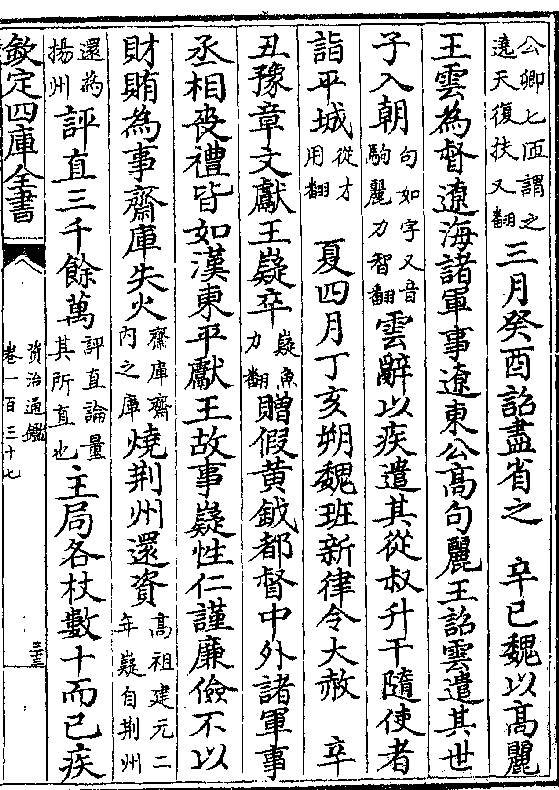 公卿七匝謂之遶天復扶又翻三月癸酉詔盡省之　辛巳魏以高麗
王雲為督遼海諸軍事遼東公高句麗王詔雲遣其世
子入朝句如字又音駒麗力智翻雲辭以疾遣其從叔升干隨使者
詣平城從才用翻　夏四月丁亥朔魏班新律令大赦　辛
丑豫章文獻王嶷卒嶷魚力翻贈假黄鉞都督中外諸軍事
丞相喪禮皆如漢東平獻王故事嶷性仁謹廉儉不以
財賄為事齋庫失火齋庫齋内之庫燒荆州還資高祖建元二年嶷自荆州
還為揚州評直三千餘萬評直論量其所直也主局各杖數十而已疾
欽定四庫全書
資治通鑑
卷一百三十七
三十三